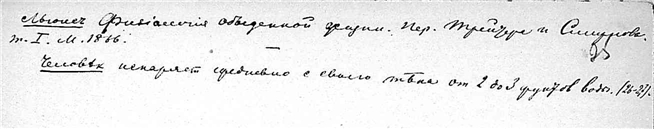 Льюис Физиология обыденной жизни. Пер. Трейзера и Смирнова.
т. I. М. 1866.
Человѣк испаряет ежедневно с своего тѣла от 2 до 3 фунтов воды. (26-27).